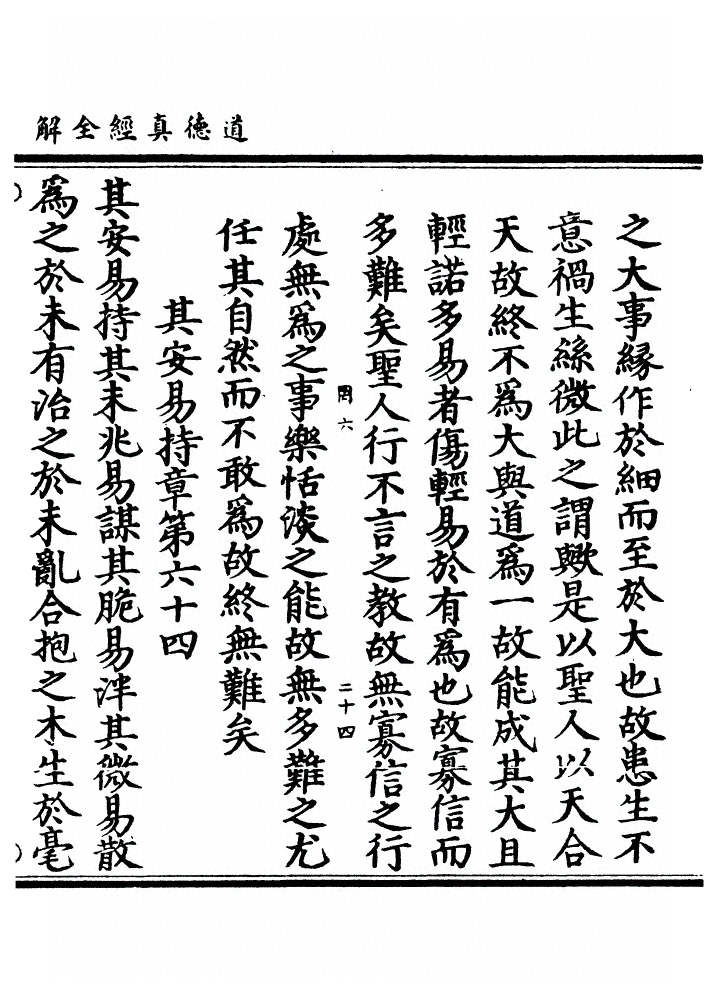 道德真經全解
之大事緣作於細而至於大也故患生不
意禍生絲微此之謂歟是以聖人以天合
天故終不為大與道為一故能成其大且
輕諾多易者傷輕易於有為也故寡信而
多難矣聖人行不言之教故無寡信之行
罔六
二十四
處無為之事樂恬淡之能故無多難之尤
任其自然而不敢為故終無難矣
其安易持章第六十四
其安易持其未兆易謀其脆易泮其微易散
為之於未有治之於未亂合抱之木生於毫